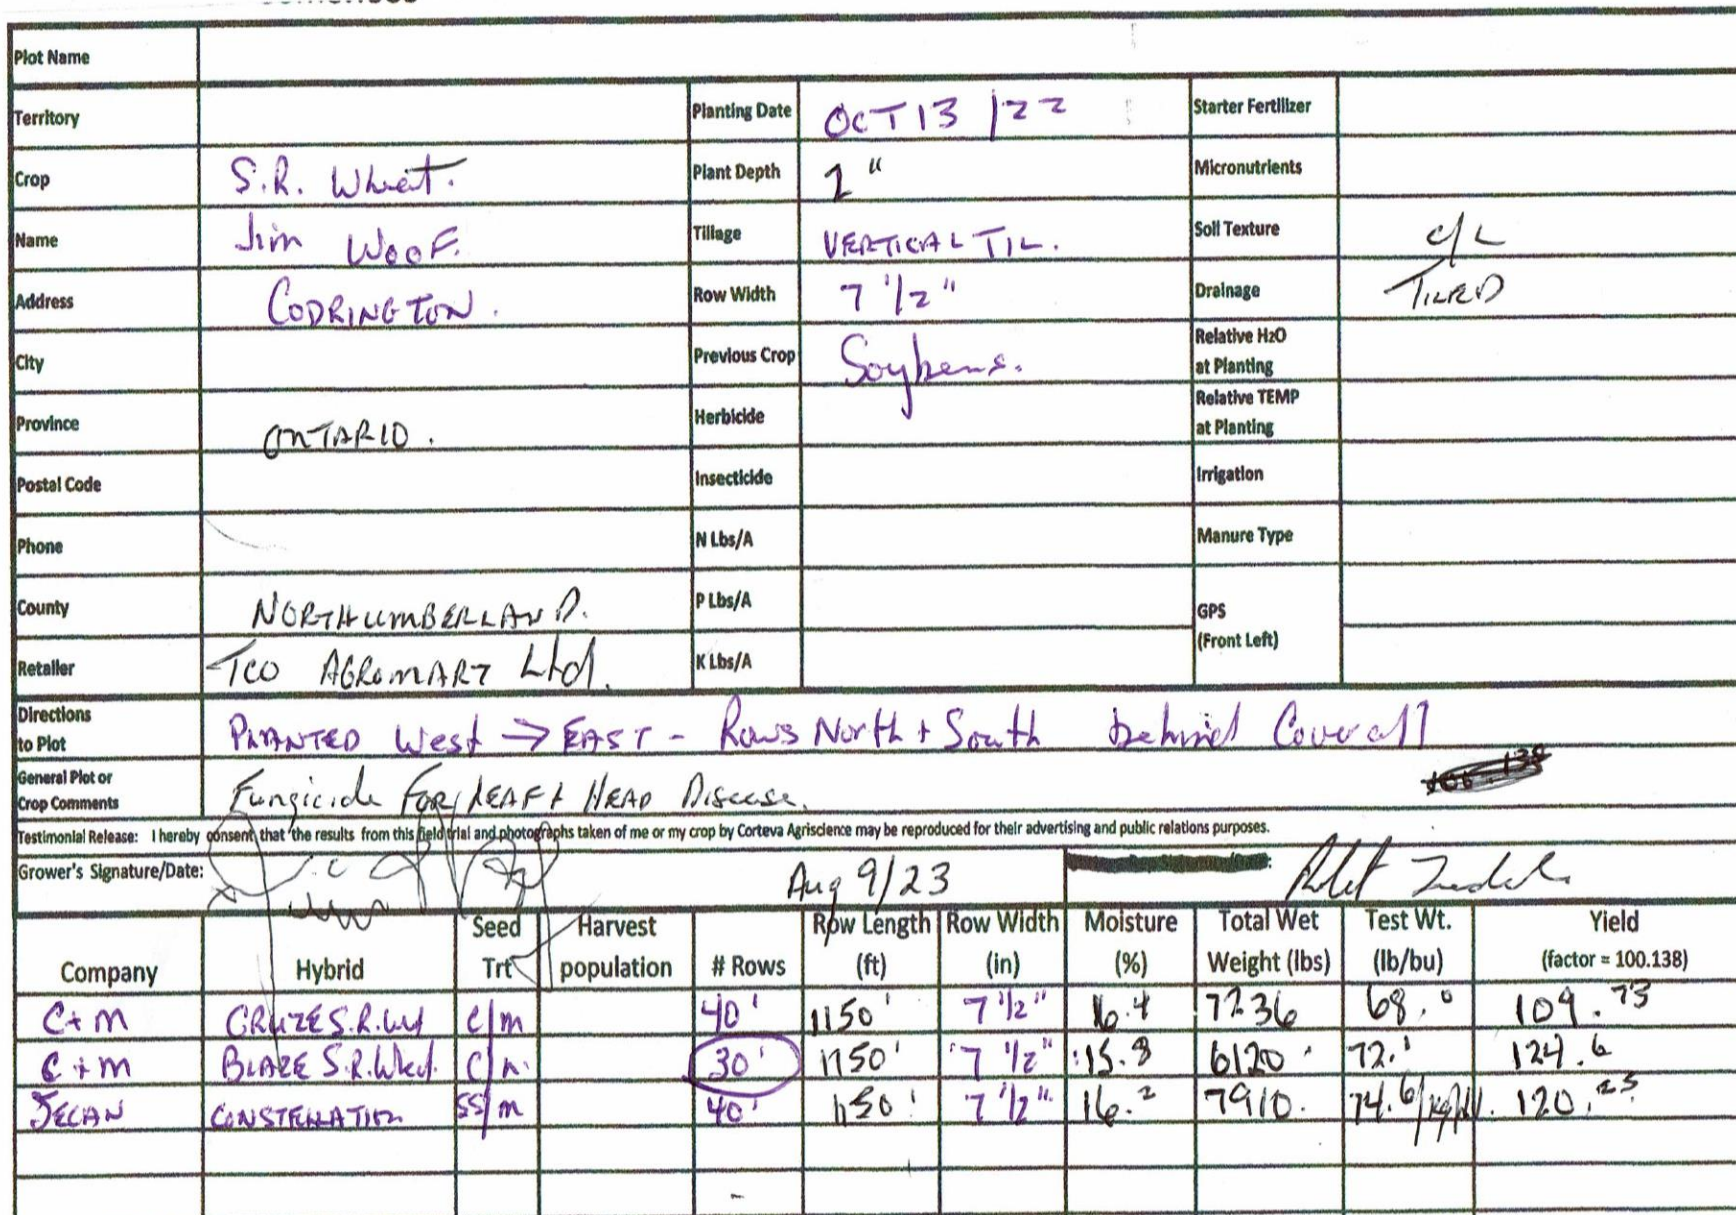 Plot Name
Territory Planting Date OCT 13 /22 Starter Fertilizer
Crop S.R. Wheat. Plant Depth 1" Micronutrients
Name Jim Woof. Tillage VERTICAL TIL. Soil Texture C/L
Address CODRINGTON. Row Width 7 1/2" Drainage TILED
City Previous Crop Soybens. Relative H2O at Planting
Province ONTARIO. Herbicide Relative TEMP at Planting
Postal Code Insecticide Irrigation
Phone N Lbs/A Manure Type
County NORTHUMBERLAND. P Lbs/A GPS (Front Left)
Retailer TCO AGROMART Ltd. K Lbs/A
Directions to Plot PLANTED West → EAST - Rows North + South behind Coverall
General Plot or Crop Comments Fungicide FOR LEAF + HEAD Disease.
Testimonial Release: I hereby consent that the results from this field trial and photographs taken of me or my crop by Corteva Agriscience may be reproduced for their advertising and public relations purposes.
Grower's Signature/Date: Aug 9/23
Company Hybrid Seed Trt Harvest population # Rows Row Length (ft) Row Width (in) Moisture (%) Total Wet Weight (lbs) Test Wt. (lb/bu) Yield (factor = 100.138)
C+m CRUZE S.R.W C/m 40' 1150' 7 1/2" 16.4 7236 68.0 109.73
C+m BLAZE S.R. C/m 30' 1150' 7 1/2" 15.8 6120 72.1 124.6
SECAN CONSTELLATION SS/m 40' 1150' 7 1/2" 16.2 7910. 74.6 120.25